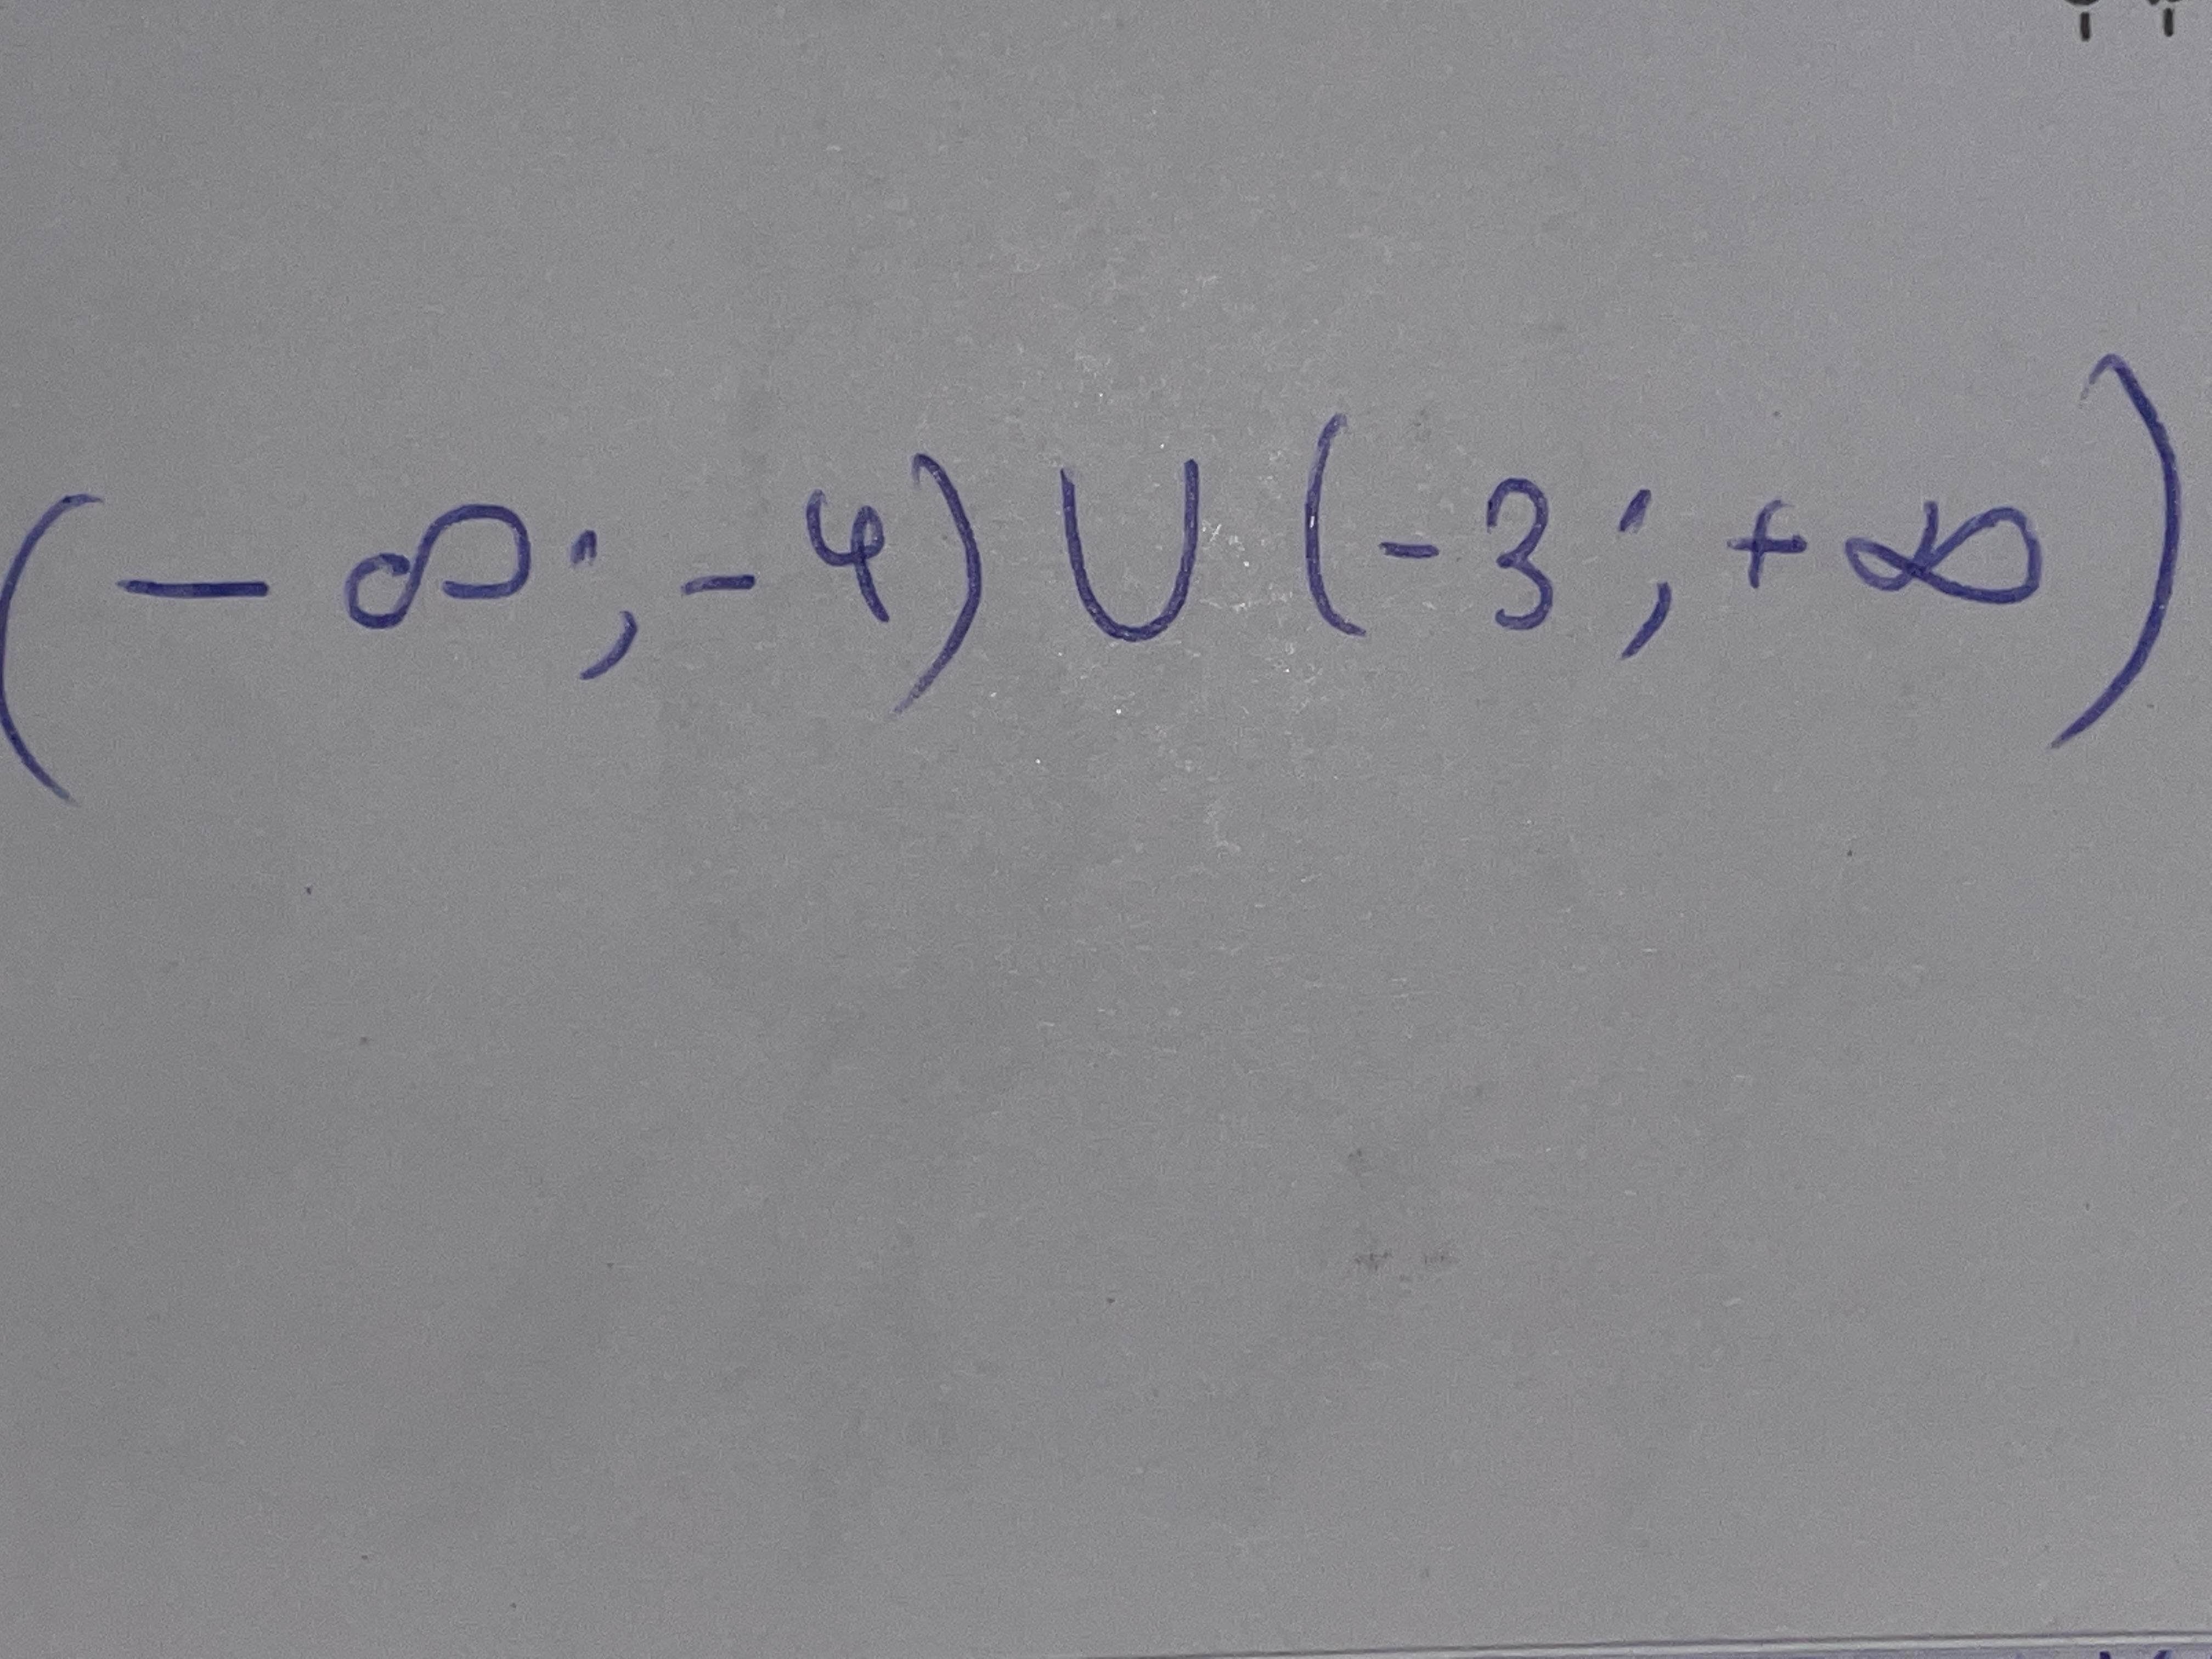 (-∞; -4) ∪ (-3; +∞)